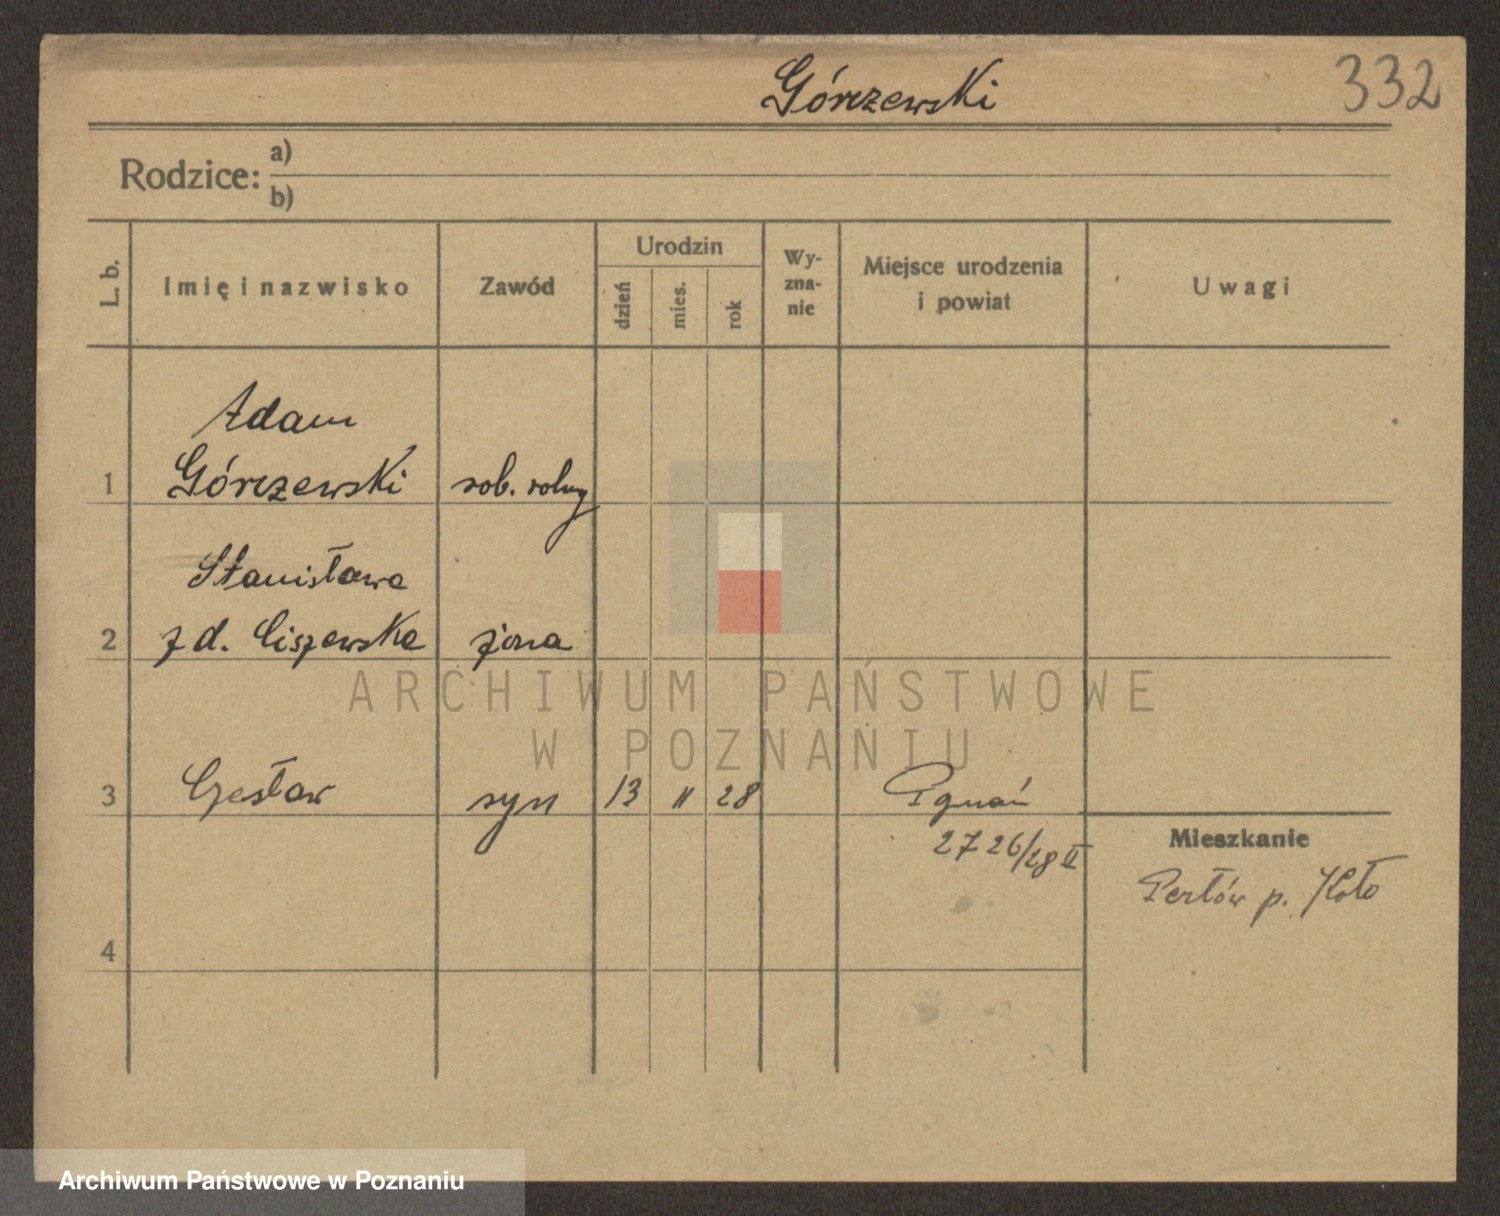 Górczewski
332
Rodzice:
a)
b)
L. b.
Imię i nazwisko
Zawód
Urodzin
dzień
mies.
rok
Wy-
zna-
nie
Miejsce urodzenia
i powiat
Uwagi
Adam
1 Górczewski rob. rolny
Stanisława
2 z d. Ciszewska żona
3 Czesław syn 13 II 28 Poznań
2726/28 II
Mieszkanie
p. Koło
4
ARCHIWUM PAŃSTWOWE
W POZNANIU
Archiwum Państwowe w Poznaniu